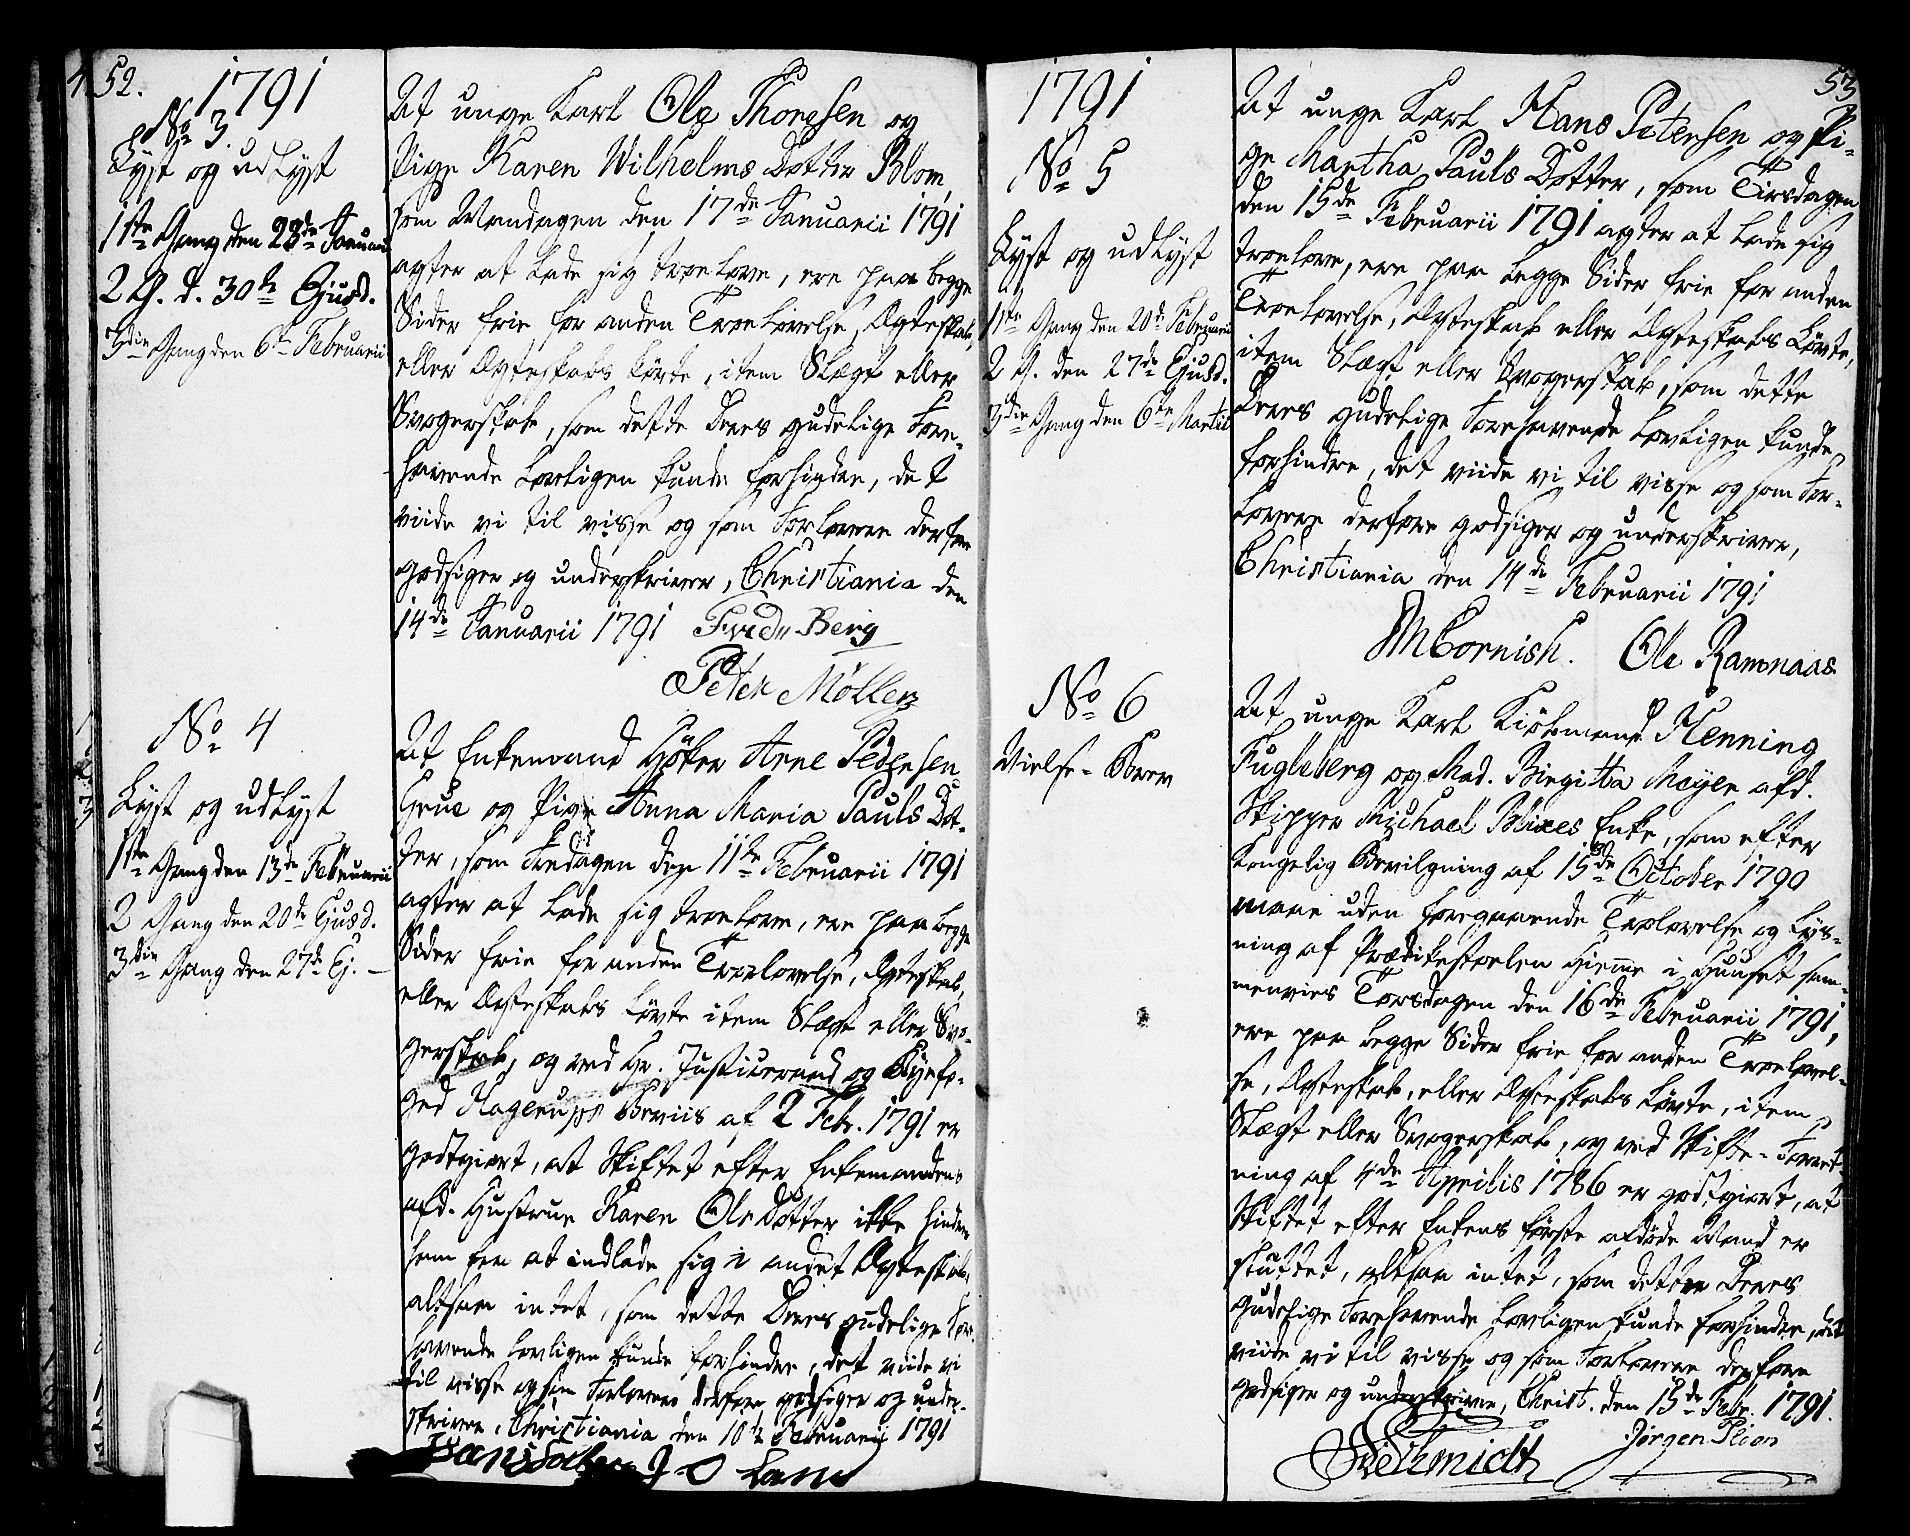 52.
1791
No 3.
Lyst og udLyst
1ste Gang den 23de Januarii
2 G. d. 30te Ejusd.
3die Gang den 6te Februarii
At unge Karl Ole Thoresen og
Pige Karen Wilhelms Dotter Blom,
som Mandagen den 17de Januarii 1791
agter at lade sig troelove, ere paa begge
Sider frie for anden Troelovelse, Ægteskab,
eller Ægteskabs Løvte, item Slægt eller
Svogerskab, som dette Deres gudelige Fore-
havende lovligen kunde forhindre, det
viide vi til visse og som Forlovere derfore
godsiger og underskriver, Christiania den
14de Januarii 1791 Fredr Berg
Peter Möller
No 4
Lyst og udLyst
1ste Gang den 13de Februarii
2 Gang den 20de Ejusd.
3die Gang den 27de Ej. –
At Enkemand Höker Arne Pedersen
Grue og Pige Anna Maria Pauls Dot-
ter, som Fredagen den 11te Februarii 1791
agter at lade sig troelove, ere paa begge
Sider frie for anden Troelovelse, Ægteskab,
eller Ægteskabs Løvte item Slægt eller Svo-
gerskab, og ved Hr. Justiceraad og Byefo-
ged Hagerups Beviis af 2 Febr. 1791 er
godtgiort, at Skiftet efter Enkemandens
afd. Hustrue Karen Ole Dotter ikke hindrer
ham fra at indlade sig i andet Ægteskab,
altsaa intet, som dette Deres gudelige Fore-
havende lovligen kunde forhindre, det viide vi
til visse og som Forlovere derfore godsiger og under-
skriver, Christiania den 10de Februarii 1791
1791
No 5
Lyst og udLyst
1ste Gang den 20de Februarii
2 G. den 27de Ejusd.
3die Gang den 6te Martii
53
At unge Karl Hans Petersen og Pi-
ge Martha Pauls Dotter, som Tirsdagen
den 15de Februarii 1791 agter at lade sig
troelove, ere paa begge Sider frie for anden
Troelovelse, Ægteskab eller Ægteskabs Løvte,
item Slægt eller Svogerskab, som dette
Deres gudelige Forehavende lovligen kunde
forhindre, det viide vi til visse og som For-
lovere derfore godsiger og underskriver,
Christiania den 14de Februarii 1791
MCornish. Ole Ramnaas
No 6
Vielse-Brev
At unge Karl Kiöbmand Henning
Fugleberg og Mad. Birgitta Meyer afd.
Skipper Michael Blixes Enke, som efter
Kongelig Bevilgning af 15de October 1790
maae uden foregaaende Troelovelse og Lys-
ning af Prædikestoelen hieme i Huuset sam-
menvies Torsdagen den 16de Februarii 1791,
ere paa begge Sider frie for anden Troelovel-
se, Ægteskab, eller Ægteskabs Løvte, item
Slægt eller Svogerskab, og ved Skifte-Forret-
ning af 4de Aprilis 1786 er godtgiort, at
Skiftet efter Enkens første afdøde Mand er
sluttet, altsaa intet, som dette Deres
gudelige Forehavende lovligen kunde forhindre, det
viide vi til visse og som Forlovere derfore
godsiger og underskriver, Christ. den 13de Febr. 1791.
Schmidt Jørgen Ploen